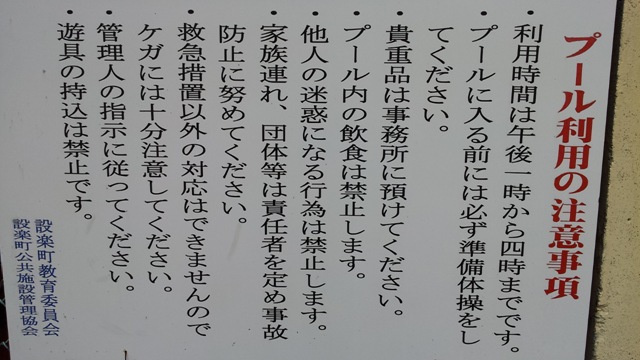 プール利用の注意事項
・利用時間は午後一時から四時までです。
・プールに入る前には必ず準備体操をし
てください。
・貴重品は事務所に預けてください。
・プール内の飲食は禁止します。
・他人の迷惑になる行為は禁止します。
・家族連れ、団体等は責任者を定め事故
防止に努めてください。
・救急措置以外の対応はできませんので
ケガには十分注意してください。
・管理人の指示に従ってください。
・遊具の持込は禁止です。
設楽町教育委員会
設楽町公共施設管理協会